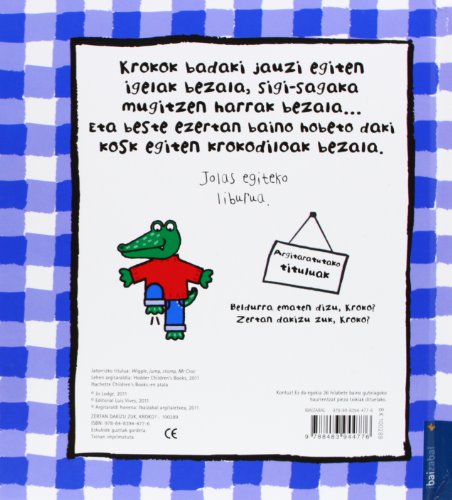 Krokok badaki jauzi egiten
igelak bezala, sigi-sagaka
mugitzen harrak bezala...
Eta beste ezertan baino hobeto daki
kosk egiten krokodiloak bezala.
Jolas egiteko
liburua.
Argitaratutako
tituluak
Beldurra ematen dizu, Kroko?
Zertan dakizu zuk, Kroko?
Jatorrizko titulua: Wiggle, Jump, stomp, Mr Croc
Lehen argitaraldia: Hodder Children's Books, 2011
Hachette Children's Books-en atala
© Jo Lodge, 2011
© Editorial Luis Vives, 2011
© Argitaraldi honena: Ibaizabal argitaletxea, 2011
ZERTAN DAKIZU ZUK, KROKO? - 100289
ISBN: 978-84-8394-477-6
Eskubide guztiak gordeta.
Txinan inprimatuta.
CE
Kontuz! Ez da egokia 36 hilabete baino gutxiagoko
haurrentzat pieza txikiak dituelako.
IBAIZABAL
ISBN 978-84-8394-477-6
9 788483 944776
BK 100289
ibaizabal